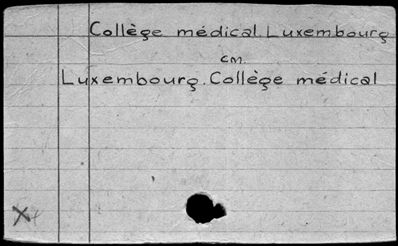 Collège médical. Luxembourg
cm.
Luxembourg. Collège médical
X